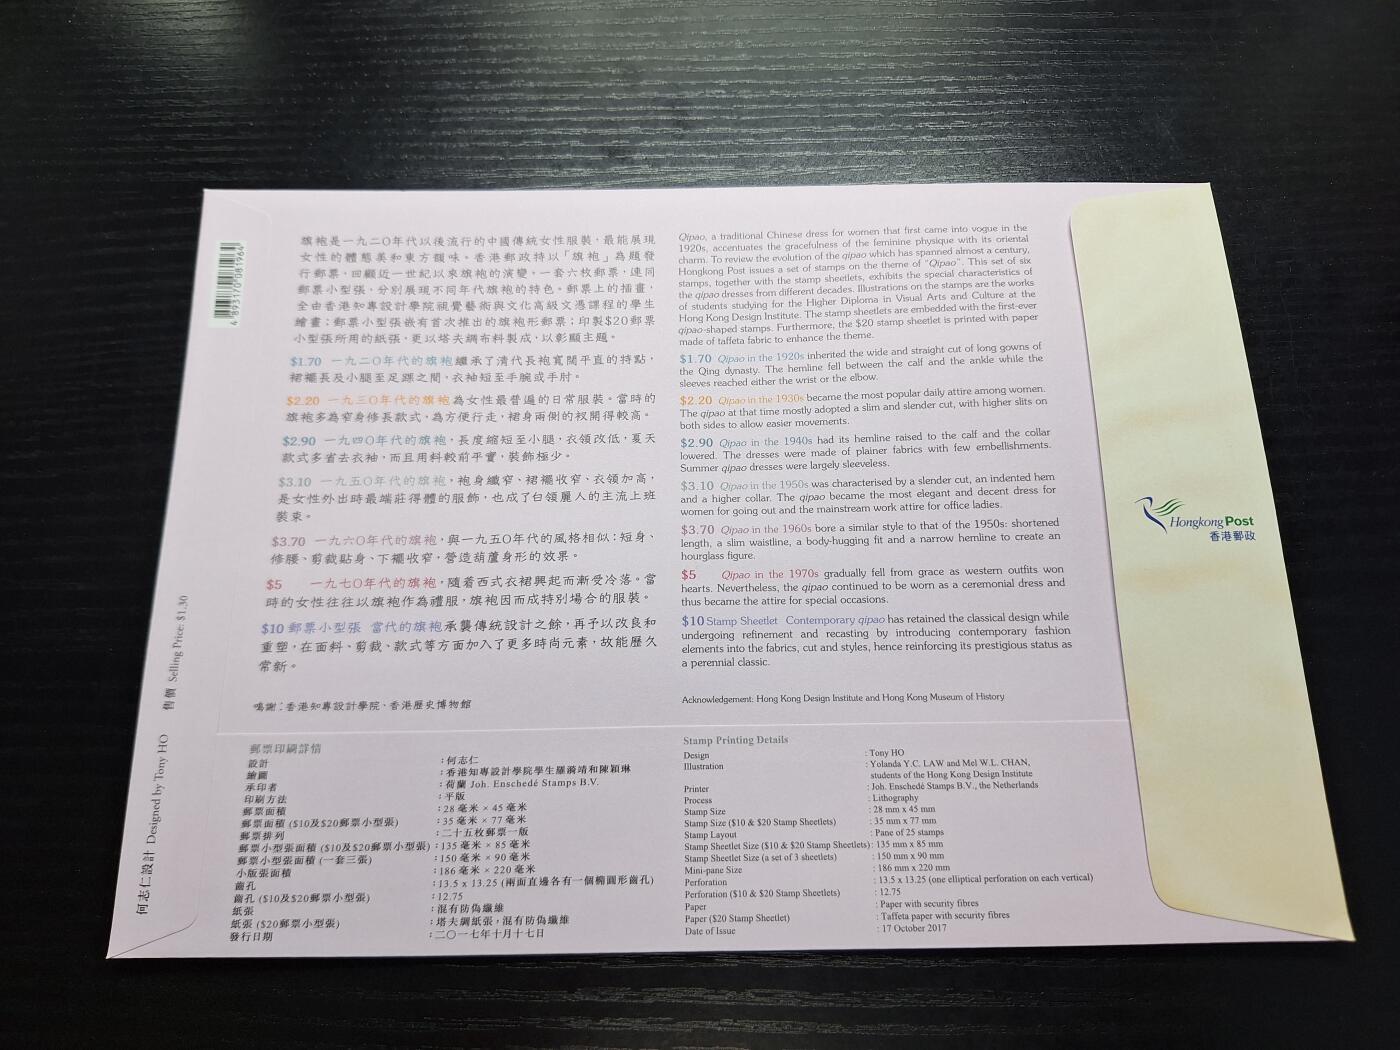 旗袍是一九二〇年代以後流行的中國傳統女性服裝，最能展現
女性的體態美和東方韻味。香港郵政特以「旗袍」為題發
行郵票，回顧近一世紀以來旗袍的演變。一套六枚郵票，連同
郵票小型張，分別展現不同年代旗袍的特色。郵票上的插畫，
全由香港知專設計學院視覺藝術與文化高級文憑課程的學生
繪畫；郵票小型張嵌有首次推出的旗袍形郵票；印製$20郵票
小型張所用的紙張，更以塔夫綢布料製成，以彰顯主題。
$1.70 一九二〇年代的旗袍繼承了清代長袍寬闊平直的特點，
裙襬長及小腿至足踝之間，衣袖短至手腕或手肘。
$2.20 一九三〇年代的旗袍為女性最普遍的日常服裝。當時的
旗袍多為窄身修長款式，為方便行走，裙身兩側的衩開得較高。
$2.90 一九四〇年代的旗袍，長度縮短至小腿，衣領改低，夏天
款式多省去衣袖，而且用料較前平實，裝飾極少。
$3.10 一九五〇年代的旗袍，袍身纖窄、裙襬收窄、衣領加高，
是女性外出時最端莊得體的服飾，也成了白領麗人的主流上班
裝束。
$3.70 一九六〇年代的旗袍，與一九五〇年代的風格相似：短身、
修腰、剪裁貼身、下襬收窄，營造葫蘆身形的效果。
$5 一九七〇年代的旗袍，隨着西式衣裙興起而漸受冷落。當
時的女性往往以旗袍作為禮服，旗袍因而成特別場合的服裝。
$10 郵票小型張 當代的旗袍承襲傳統設計之餘，再予以改良和
重塑，在面料、剪裁、款式等方面加入了更多時尚元素，故能歷久
常新。
鳴謝：香港知專設計學院、香港歷史博物館
Qipao, a traditional Chinese dress for women that first came into vogue in the
1920s, accentuates the gracefulness of the feminine physique with its oriental
charm. To review the evolution of the qipao which has spanned almost a century,
Hongkong Post issues a set of stamps on the theme of "Qipao". This set of six
stamps, together with the stamp sheetlets, exhibits the special characteristics of
the qipao dresses from different decades. Illustrations on the stamps are the works
of students studying for the Higher Diploma in Visual Arts and Culture at the
Hong Kong Design Institute. The stamp sheetlets are embedded with the first-ever
qipao-shaped stamps. Furthermore, the $20 stamp sheetlet is printed with paper
made of taffeta fabric to enhance the theme.
$1.70 Qipao in the 1920s inherited the wide and straight cut of long gowns of
the Qing dynasty. The hemline fell between the calf and the ankle while the
sleeves reached either the wrist or the elbow.
$2.20 Qipao in the 1930s became the most popular daily attire among women.
The qipao at that time mostly adopted a slim and slender cut, with higher slits on
both sides to allow easier movements.
$2.90 Qipao in the 1940s had its hemline raised to the calf and the collar
lowered. The dresses were made of plainer fabrics with few embellishments.
Summer qipao dresses were largely sleeveless.
$3.10 Qipao in the 1950s was characterised by a slender cut, an indented hem
and a higher collar. The qipao became the most elegant and decent dress for
women for going out and the mainstream work attire for office ladies.
$3.70 Qipao in the 1960s bore a similar style to that of the 1950s: shortened
length, a slim waistline, a body-hugging fit and a narrow hemline to create an
hourglass figure.
$5 Qipao in the 1970s gradually fell from grace as western outfits won
hearts. Nevertheless, the qipao continued to be worn as a ceremonial dress and
thus became the attire for special occasions.
$10 Stamp Sheetlet Contemporary qipao has retained the classical design while
undergoing refinement and recasting by introducing contemporary fashion
elements into the fabrics, cut and styles, hence reinforcing its prestigious status as
a perennial classic.
Acknowledgement: Hong Kong Design Institute and Hong Kong Museum of History
郵票印刷詳情
設計 ：何志仁
繪圖 ：香港知專設計學院學生羅漪靖和陳穎琳
承印者 ：荷蘭 Joh. Enschedé Stamps B.V.
印刷方法 ：平版
郵票面積 ：28 毫米 × 45 毫米
郵票面積 ($10及$20郵票小型張) ：35 毫米 × 77 毫米
郵票排列 ：二十五枚郵票一版
郵票小型張面積 ($10及$20郵票小型張) ：135 毫米 × 85 毫米
郵票小型張面積 (一套三張) ：150 毫米 × 90 毫米
小版張面積 ：186 毫米 × 220 毫米
齒孔 ：13.5 x 13.25 (兩面直邊各有一個橢圓形齒孔)
齒孔 ($10及$20郵票小型張) ：12.75
紙張 ：混有防偽纖維
紙張 ($20郵票小型張) ：塔夫綢紙張，混有防偽纖維
發行日期 ：二〇一七年十月十七日
Stamp Printing Details
Design : Tony HO
Illustration : Yolanda Y.C. LAW and Mel W.L. CHAN,
students of the Hong Kong Design Institute
Printer : Joh. Enschedé Stamps B.V., the Netherlands
Process : Lithography
Stamp Size : 28 mm x 45 mm
Stamp Size ($10 & $20 Stamp Sheetlets) : 35 mm x 77 mm
Stamp Layout : Pane of 25 stamps
Stamp Sheetlet Size ($10 & $20 Stamp Sheetlets) : 135 mm x 85 mm
Stamp Sheetlet Size (a set of 3 sheetlets) : 150 mm x 90 mm
Mini-pane Size : 186 mm x 220 mm
Perforation : 13.5 x 13.25 (one elliptical perforation on each vertical)
Perforation ($10 & $20 Stamp Sheetlets) : 12.75
Paper : Paper with security fibres
Paper ($20 Stamp Sheetlet) : Taffeta paper with security fibres
Date of Issue : 17 October 2017
4 893170 081964
何志仁設計 Designed by Tony HO 售價 Selling Price: $1.30
Hongkong Post
香港郵政